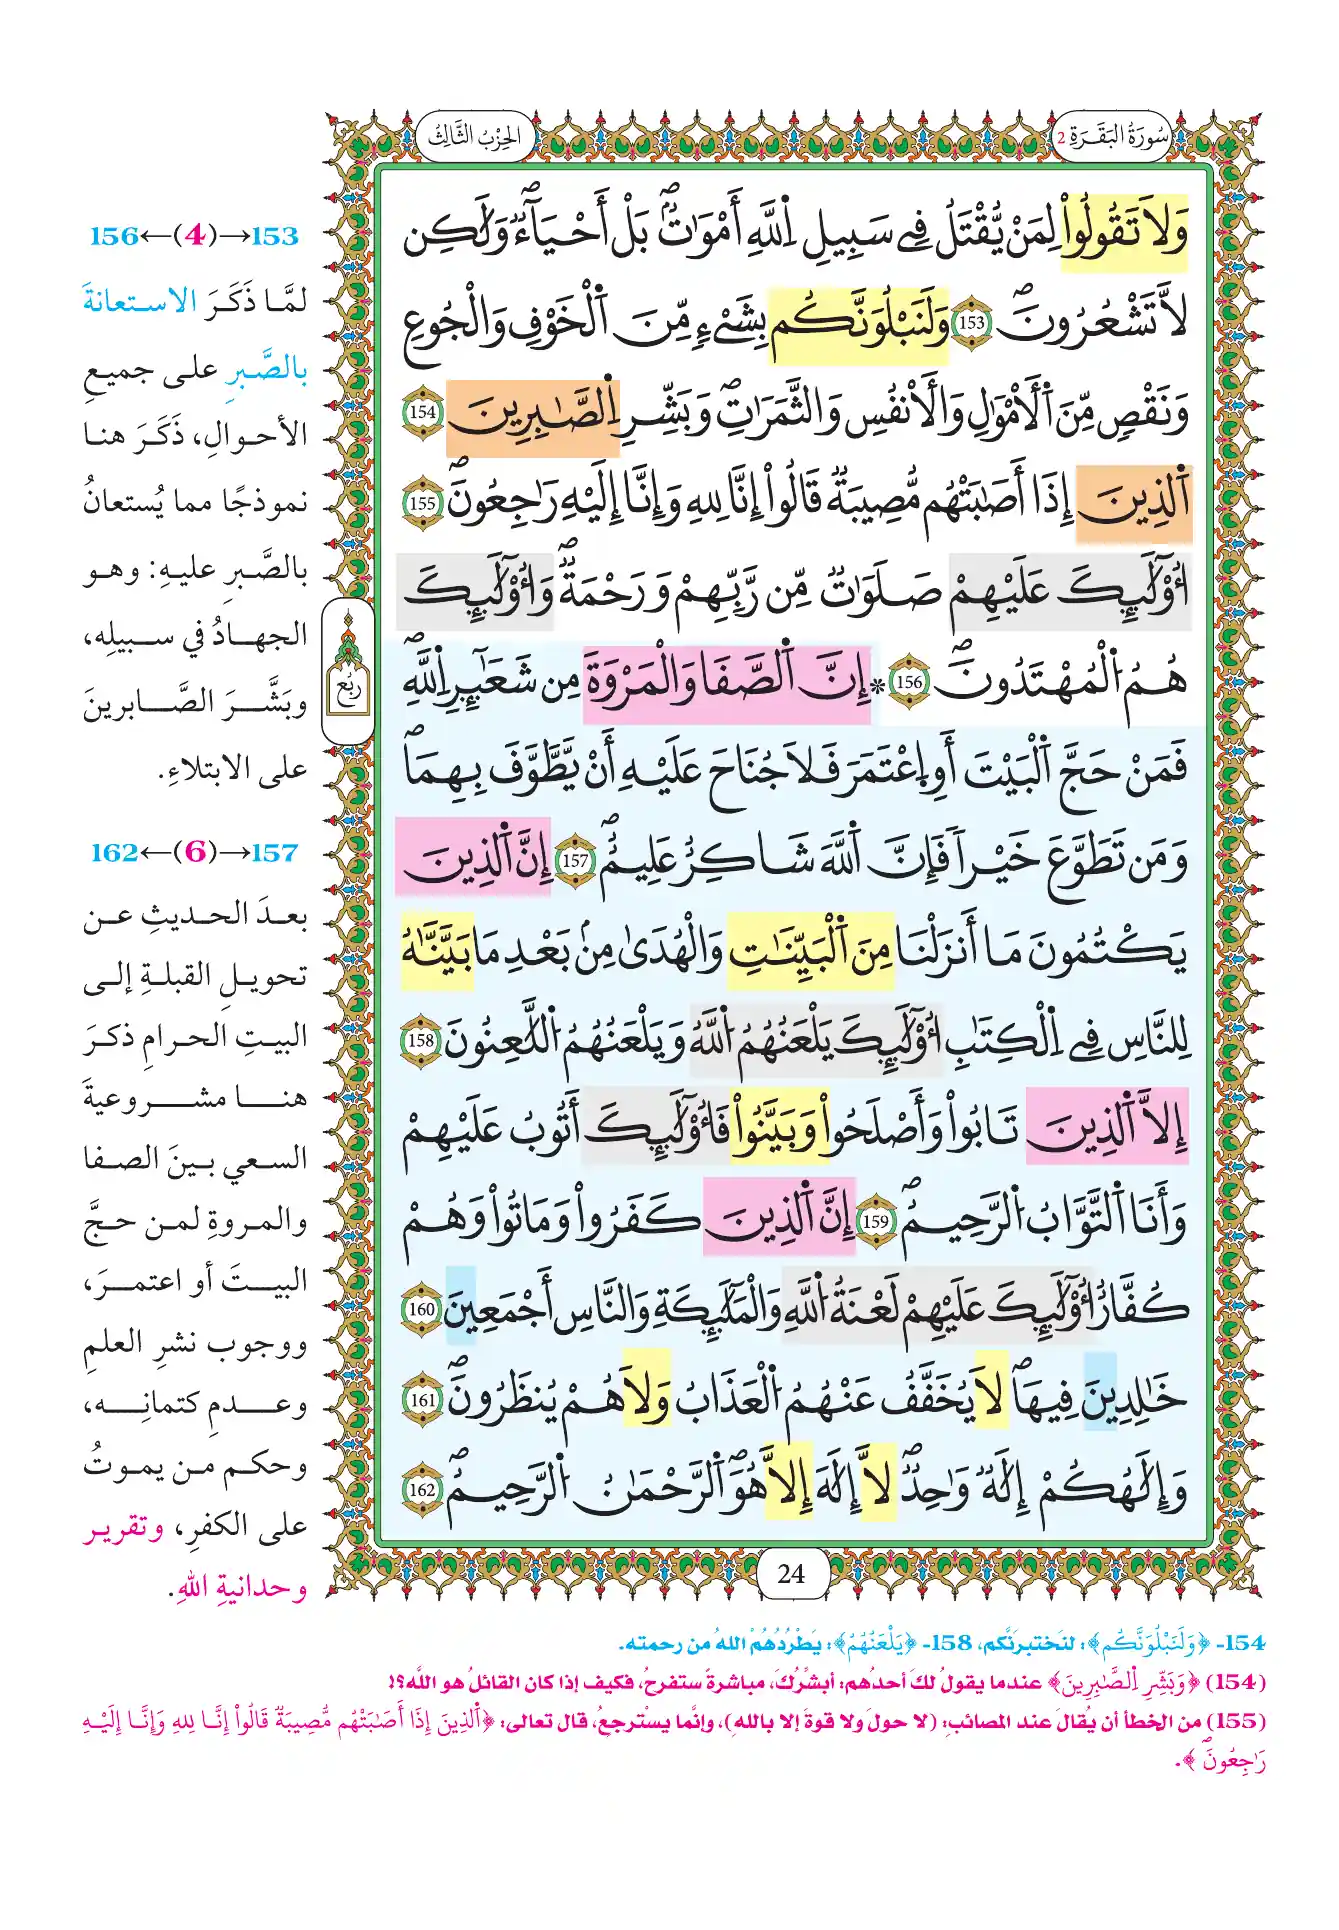 سُورَةُ البَقَرَةِ 2
الحِزْبُ الثَّالِثُ
وَلَا تَقُولُواْ لِمَنْ يُّقْتَلُ فِے سَبِيلِ اِ۬للَّهِ أَمْوَٰتٌۢ بَلْ أَحْيَآءٌ وَلَٰكِن
لَّا تَشْعُرُونَۖ 153 وَلَنَبْلُوَنَّكُم بِشَےْءٖ مِّنَ اَ۬لْخَوْفِ وَالْجُوعِ
وَنَقْصٖ مِّنَ اَ۬لْأَمْوَٰلِ وَالْأَنفُسِ وَالثَّمَرَٰتِۖ وَبَشِّرِ اِ۬لصَّٰبِرِينَ 154
اَ۬لذِينَ إِذَآ أَصَٰبَتْهُم مُّصِيبَةٌ قَالُوٓاْ إِنَّا لِلهِ وَإِنَّآ إِلَيْهِ رَٰجِعُونَۖ 155
أُوْلَٰٓئِكَ عَلَيْهِمْ صَلَوَٰتٌ مِّن رَّبِّهِمْ وَرَحْمَةٌۖ وَأُوْلَٰٓئِكَ
هُمُ اُ۬لْمُهْتَدُونَۖ 156 *إِنَّ اَ۬لصَّفَا وَالْمَرْوَةَ مِن شَعَآئِرِ اِ۬للَّهِۖ
فَمَنْ حَجَّ اَ۬لْبَيْتَ أَوِ اِ۪عْتَمَرَ فَلَا جُنَاحَ عَلَيْهِ أَنْ يَّطَّوَّفَ بِهِمَاۖ
وَمَن تَطَوَّعَ خَيْراٗ فَإِنَّ اَ۬للَّهَ شَاكِرٌ عَلِيمٌۖ 157 إِنَّ اَ۬لذِينَ
يَكْتُمُونَ مَآ أَنزَلْنَا مِنَ اَ۬لْبَيِّنَٰتِ وَالْهُدَىٰ مِنۢ بَعْدِ مَا بَيَّنَّٰهُ
لِلنَّاسِ فِے اِ۬لْكِتَٰبِ أُوْلَٰٓئِكَ يَلْعَنُهُمُ اُ۬للَّهُ وَيَلْعَنُهُمُ اُ۬للَّٰعِنُونَ 158
إِلَّا اَ۬لذِينَ تَابُواْ وَأَصْلَحُواْ وَبَيَّنُواْ فَأُوْلَٰٓئِكَ أَتُوبُ عَلَيْهِمْ
وَأَنَا اَ۬لتَّوَّابُ اُ۬لرَّحِيمُۖ 159 إِنَّ اَ۬لذِينَ كَفَرُواْ وَمَاتُواْ وَهُمْ
كُفَّارٌ أُوْلَٰٓئِكَ عَلَيْهِمْ لَعْنَةُ اُ۬للَّهِ وَالْمَلَٰٓئِكَةِ وَالنَّاسِ أَجْمَعِينَ 160
خَٰلِدِينَ فِيهَاۖ لَا يُخَفَّفُ عَنْهُمُ اُ۬لْعَذَابُ وَلَا هُمْ يُنظَرُونَۖ 161
وَإِلَٰهُكُمْ إِلَٰهٌ وَٰحِدٌۖ لَّآ إِلَٰهَ إِلَّا هُوَۖ اَ۬لرَّحْمَٰنُ اُ۬لرَّحِيمُۖ 162
رُبُع
24
153→(4)←156
لمَّا ذَكَرَ الاستعانةَ
بالصَّبرِ على جميعِ
الأحوالِ، ذَكَرَ هنا
نموذجًا مما يُستعانُ
بالصَّبرِ عليهِ: وهو
الجهادُ في سبيلِه،
وبَشَّرَ الصَّابرينَ
على الابتلاءِ.
157→(6)←162
بعدَ الحديثِ عن
تحويلِ القبلةِ إلى
البيتِ الحرامِ ذكرَ
هنا مشروعيةَ
السعي بينَ الصفا
والمروةِ لمن حجَّ
البيتَ أو اعتمرَ،
ووجوب نشرِ العلمِ
وعدمِ كتمانِه،
وحكم من يموتُ
على الكفرِ، وتقرير
وحدانيةِ اللهِ.
154- ﴿وَلَنَبْلُوَنَّكُم﴾: لنَختبرَنَّكم، 158- ﴿يَلْعَنُهُمُ﴾: يَطْرُدُهُمْ اللهُ من رحمته.
(154) ﴿وَبَشِّرِ اِ۬لصَّٰبِرِينَ﴾ عندما يقولُ لكَ أحدُهم: أبشِّرُكَ، مباشرةً ستفرحُ، فكيف إذا كان القائلُ هو اللَّه؟!
(155) من الخطأ أن يُقالَ عند المصائبِ: (لا حولَ ولا قوةَ إلا باللهِ)، وإنَّما يسْترجعُ، قال تعالى: ﴿اَ۬لذِينَ إِذَآ أَصَٰبَتْهُم مُّصِيبَةٌ قَالُوٓاْ إِنَّا لِلهِ وَإِنَّآ إِلَيْهِ
رَٰجِعُونَۖ﴾.